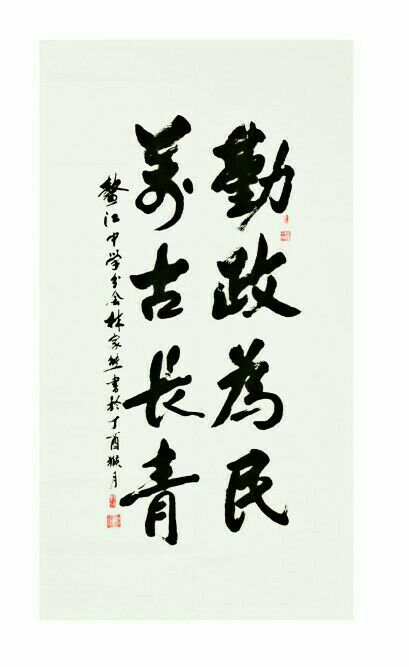 勤政為民
萬古長青
鳌江中学分会林家熊書於丁酉猴月